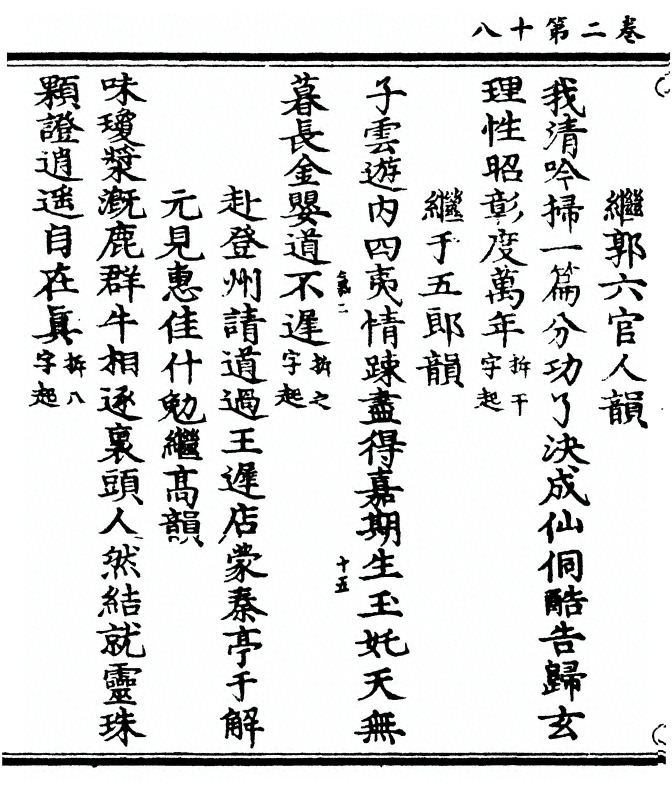 卷二第十八
繼郭六官人韻
我清吟掃一篇分功了決成仙侗酷告歸玄
理性昭彰度萬年拆干字起
繼于五郎韻
子雲遊內四夷情踈盡得嘉期生玉妊天無
暮長金嬰道不遲拆之字起
氣二
十五
赴登州請道過王遲店蒙秦亭于解
元見惠佳什勉繼高韻
味瓊漿溉鹿群牛相逐裏頭人然結就靈珠
顆證逍遥自在真拆八字起